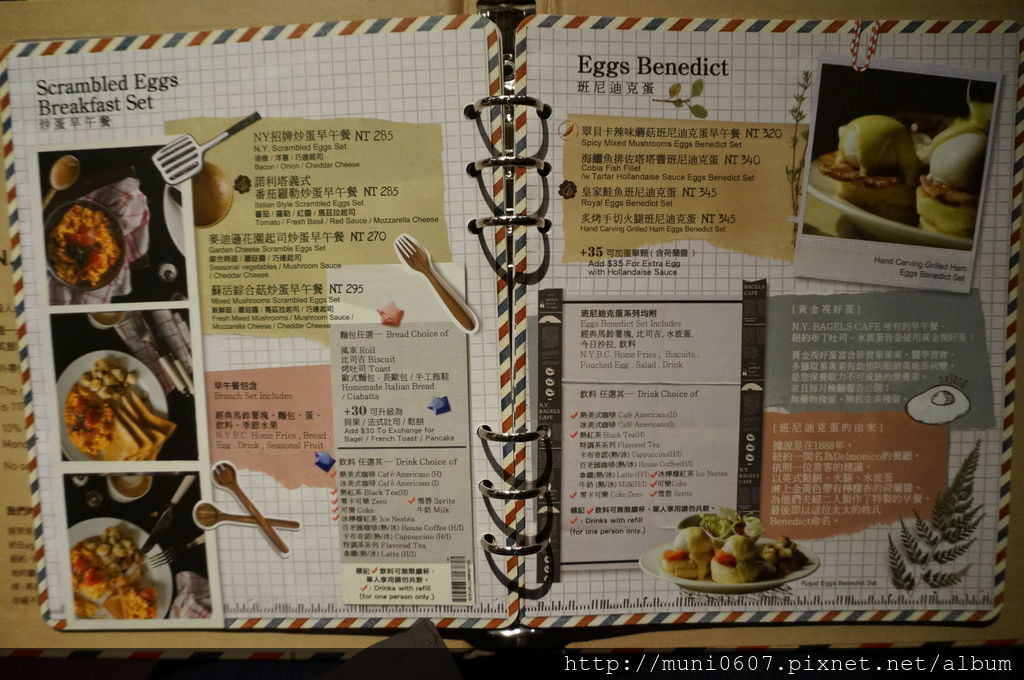 Scrambled Eggs
Breakfast Set
炒蛋早午餐
NY招牌炒蛋早午餐 NT 285
N.Y. Scrambled Eggs Set
培根 / 洋蔥 / 巧達起司
Bacon / Onion / Cheddar Cheese
諾利塔義式
番茄羅勒炒蛋早午餐 NT 285
Italian Style Scrambled Eggs Set
番茄 / 羅勒 / 紅醬 / 馬茲拉起司
Tomato / Fresh Basil / Red Sauce / Mozzarella Cheese
麥迪遜花園起司炒蛋早午餐 NT 270
Garden Cheese Scramble Eggs Set
綜合時蔬 / 蘑菇醬 / 巧達起司
Seasonal vegetables / Mushroom Sauce
/ Cheddar Cheese
蘇活綜合菇炒蛋早午餐 NT 295
Mixed Mushrooms Scrambled Eggs Set
新鮮菇 / 蘑菇醬 / 馬茲拉起司 / 巧達起司
Fresh Mushrooms / Mushroom Sauce /
Mozzarella Cheese / Cheddar Cheese
麵包任選一 Bread Choice of
風車 Roll
比司吉 Biscuit
烤吐司 Toast
歐式麵包 - 長歐包 / 手工拖鞋
Homemade Italian Bread
/ Ciabatta
+30 可升級為
貝果 / 法式吐司 / 鬆餅
Add $30 To Exchange for
Bagel / French Toast / Pancake
早午餐包含
Brunch Set Includes
經典馬鈴薯塊、麵包、蛋、
飲料、季節水果
N.Y.B.C. Home Fries , Bread ,
Egg , Drink , Seasonal Fruit
飲料 任選其一 Drink Choice of
熱美式咖啡 Café Americano (H)
冰美式咖啡 Café Americano (I)
熱紅茶 Black Tea(H)
零卡可樂 Zero 雪碧 Sprite
可樂 Coke 牛奶 Milk
冰檸檬紅茶 Ice Nestea
百老匯咖啡(熱/冰) House Coffee (H/I)
卡布奇諾(熱/冰) Cappuccino (H/I)
特調茶系列 Flavored Tea
拿鐵(熱/冰) Latte (H/I)
標記✓飲料可無限續杯，
單人享用請勿共飲。
✓: Drinks with refill
(for one person only.)
Eggs Benedict
班尼迪克蛋
翠貝卡辣味蘑菇班尼迪克蛋早午餐 NT 320
Spicy Mixed Mushrooms Eggs Benedict Set
海鱺魚排佐塔塔醬班尼迪克蛋 NT 340
Cobia Fish Fillet
/w Tartar Hollandaise Sauce Eggs Benedict Set
皇家鮭魚班尼迪克蛋 NT 345
Royal Eggs Benedict Set
炙烤手切火腿班尼迪克蛋 NT 345
Hand Carving Grilled Ham Eggs Benedict Set
+35 可加蛋單顆 ( 含荷蘭醬 )
Add $35 For Extra Egg
with Hollandaise Sauce
Hand Carving Grilled Ham
Eggs Benedict Set
班尼迪克蛋系列均附
Eggs Benedict Set Includes
經典馬鈴薯塊, 比司吉, 水波蛋,
今日沙拉, 飲料
N.Y.B.C. Home Fries , Biscuits ,
Pouched Egg , Salad , Drink
飲料 任選其一 Drink Choice of:
熱美式咖啡 Café Americano(H)
冰美式咖啡 Café Americano(I)
熱紅茶 Black Tea(H)
特調茶系列 Flavored Tea
卡布奇諾(熱/冰) Cappuccino(H/I)
百老匯咖啡(熱/冰) House Coffee(H/I)
拿鐵(熱/冰) Latte (H/I) 冰檸檬紅茶 Ice Nestea
牛奶 (熱/冰) Milk(H/I) 可樂Coke
零卡可樂 Coke Zero 雪碧 Sprite
標記✓飲料可無限續杯，單人享用請勿共飲。
✓: Drinks with refill
(for one person only.)
BAGELS
CAFE
N.Y.
BAGELS
CAFE
[ 黃金視好蛋 ]
N.Y. BAGELS CAFE 所有的早午餐、
紐約布丁吐司、水波蛋皆是使用黃金視好蛋！
黃金視好蛋富含珍貴葉黃素，醫學證實，
多攝取葉黃素有助預防眼睛黃斑部病變，
是您保養眼力不可或缺的營養素，
並且每月檢驗報告公開！
無藥物殘留、無抗生素殘留
[ 班尼迪克蛋的由來 ]
據說是在1888年，
紐約一間名為Delmonico的餐廳，
依照一位常客的建議，
以英式鬆餅、火腿、水波蛋
淋上金黃色帶有檸檬香的荷蘭醬
為他們夫妻倆製作了特製的早餐，
最後即以這位太太的姓氏
Benedict命名。
Royal Eggs Benedict Set
http://muni0607.pixnet.net/album